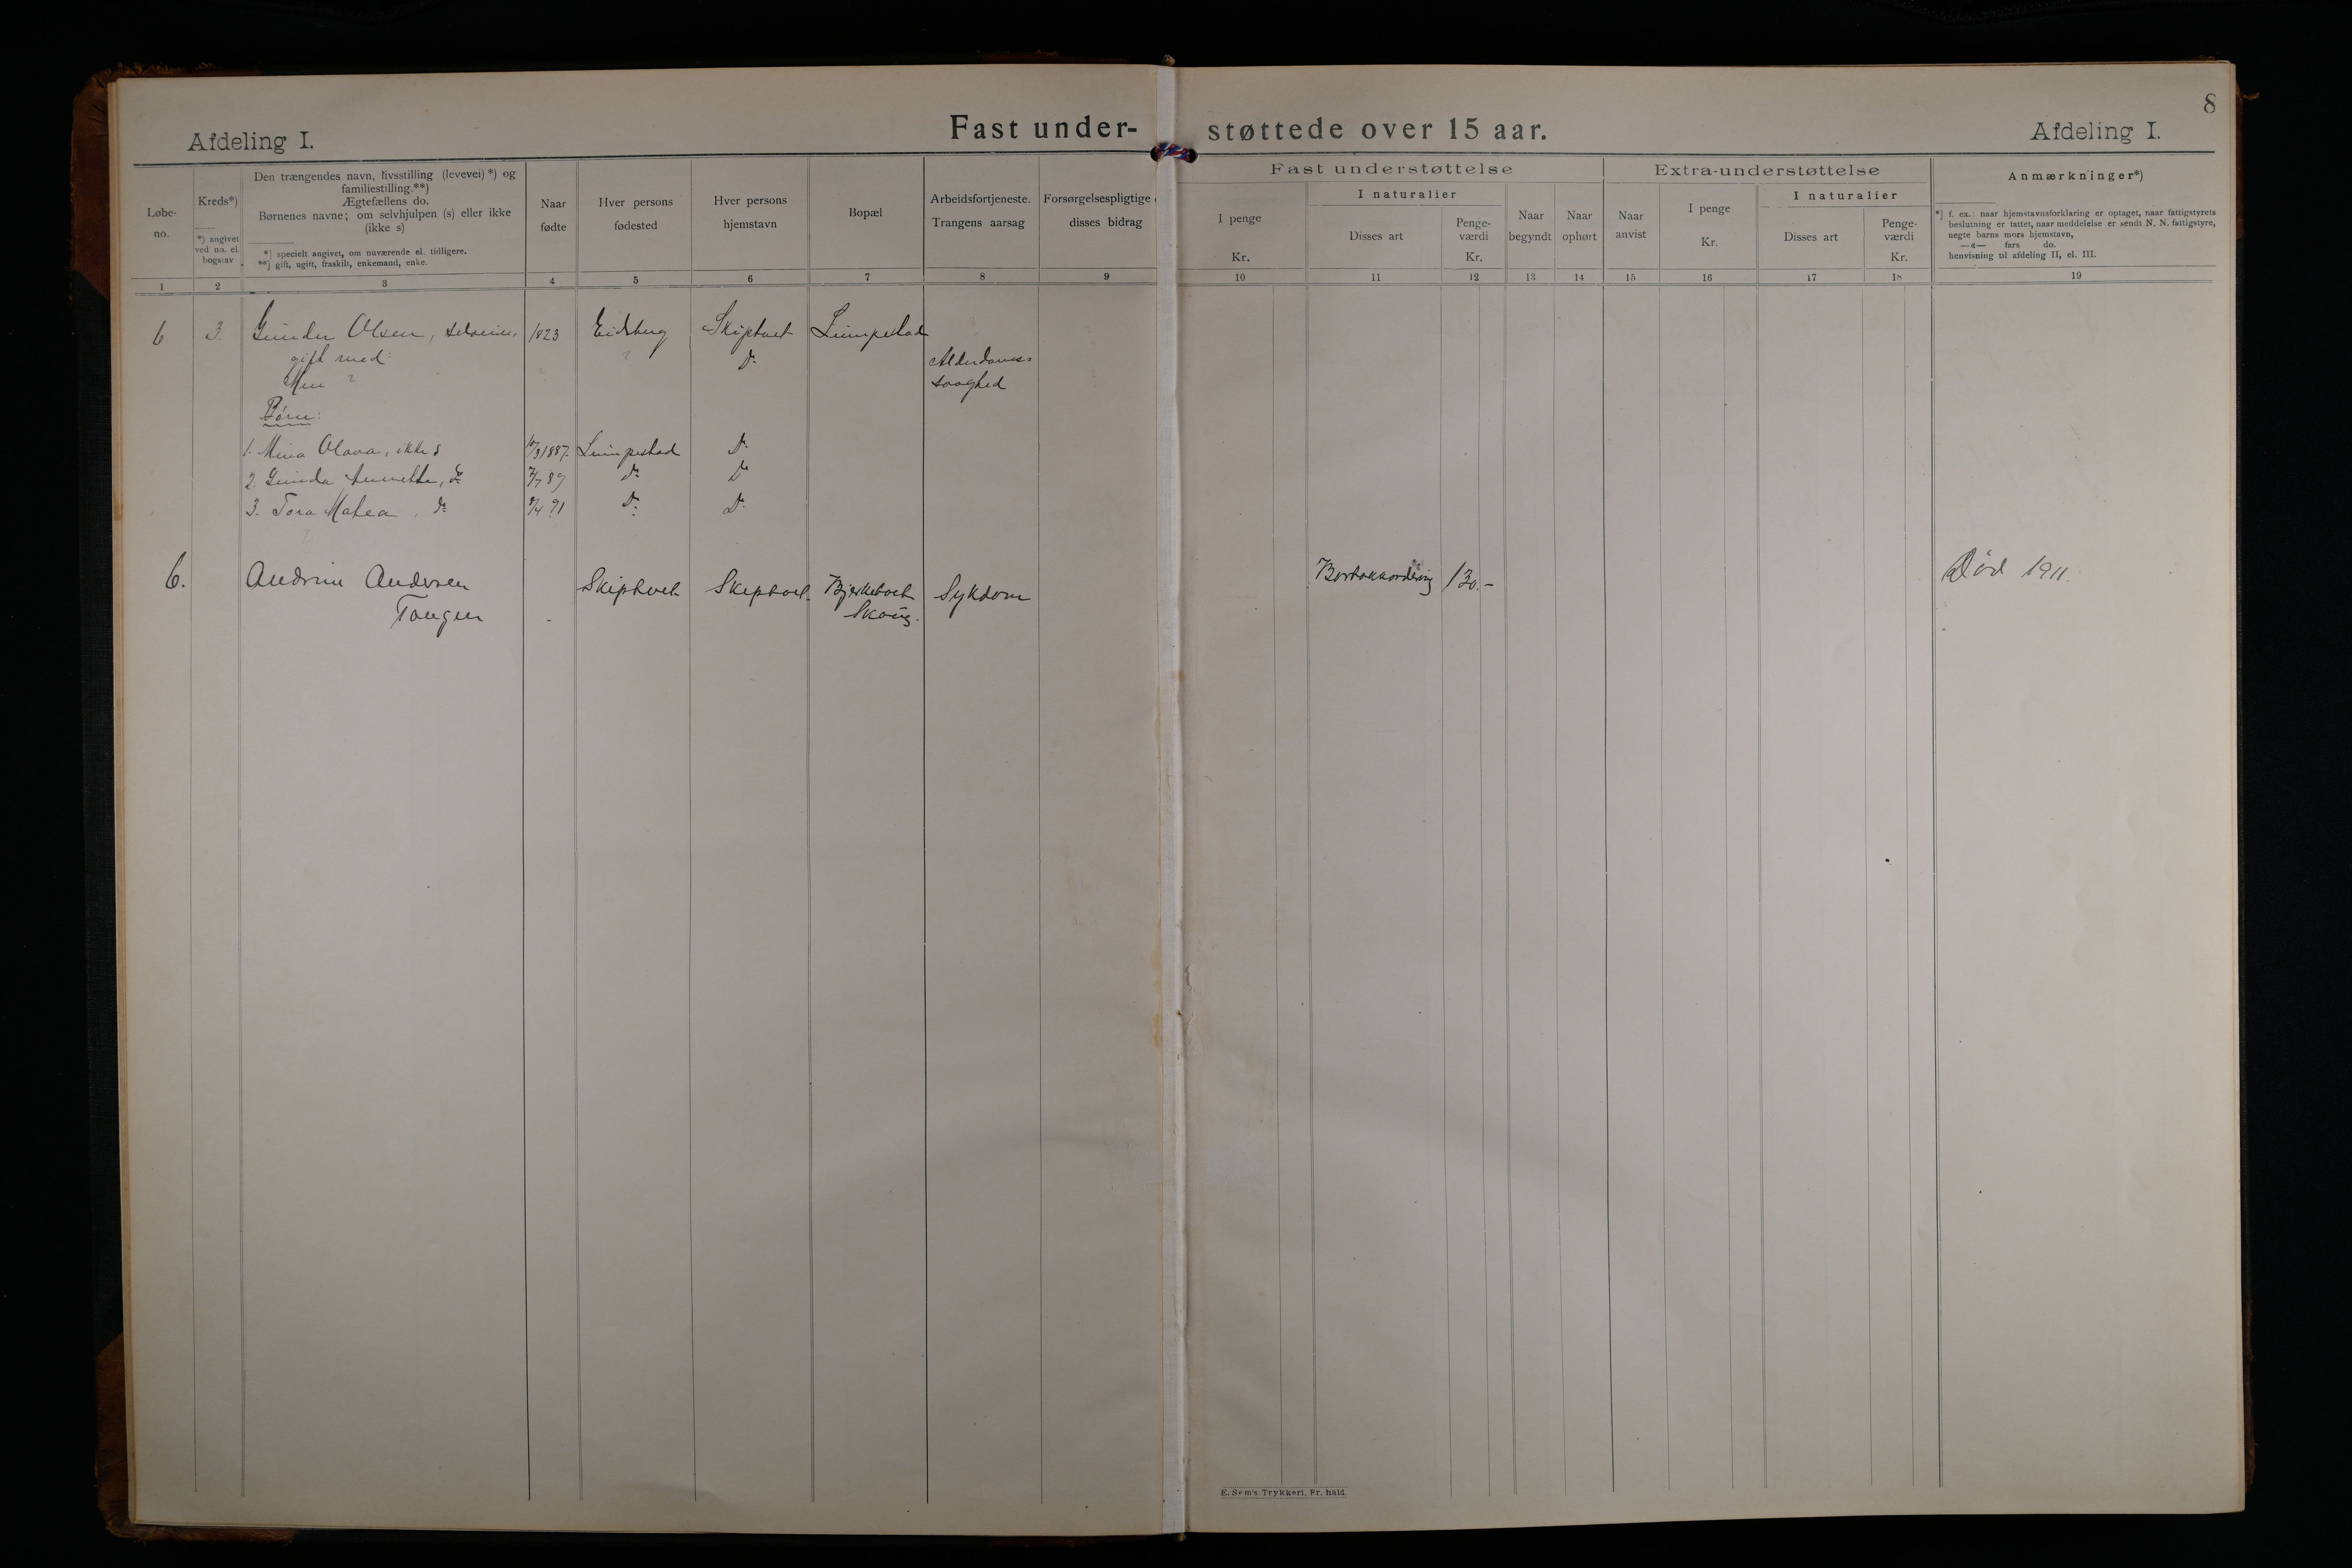 8
Afdeling I.
Fast under- støttede over 15 aar.
Afdeling I.
Løbe-
no.
Kreds*)
*) angivet
ved no. el
bogstav
Den trængendes navn, livsstilling (levevei) *) og
familiestilling.**)
Ægtefællens do.
Børnenes navne; om selvhjulpen (s) eller ikke
(ikke s)
*] specielt angivet, om nuværende el. tidligere.
**] gift, ugift, fraskilt, enkemand, enke.
Naar
fødte
Hver persons
fødested
Hver persons
hjemstavn
Bopæl
Arbeidsfortjeneste.
Trangens aarsag
Forsørgelsespligtige
disses bidrag
Fast understøttelse
I penge
Kr.
I naturalier
Disses art
Penge-
værdi
Kr.
Naar
begyndt
Naar
ophørt
Extra-understøttelse
Naar
anvist
I penge
Kr.
I naturalier
Disses art
Penge-
værdi
Kr.
Anmærkninger*)
*] f. ex.: naar hjemstavnsforklaring er optaget, naar fattigstyrets
beslutning er fattet, naar meddelelse er sendt N. N. fattigstyre,
negte barns mors hjemstavn,
—«— fars do.
henvisning til afdeling II, el. III.
1 2 3 4 5 6 7 8 9 10 11 12 13 14 15 16 17 18 19
6 3. Gunder Olsen, 1823 Eidsberg Skiptvet Lumpestad
gift med: ? Do
? Alderdoms=
svaghed
Børn:
1. Mina Olava, ikke s 3/1887. Lumpestad Do
2. Gunda Annette, do 7/7 89 do Do
3. Tora Matea, do /4 91 Do Do
6. Andrine Andersen Skiptvet Skiptvet Bjerketvet Sykdom Bortakkordering 130.- Død 1911.
Tangen Skaug.
E. Sem's Trykkeri, Fr. hald.